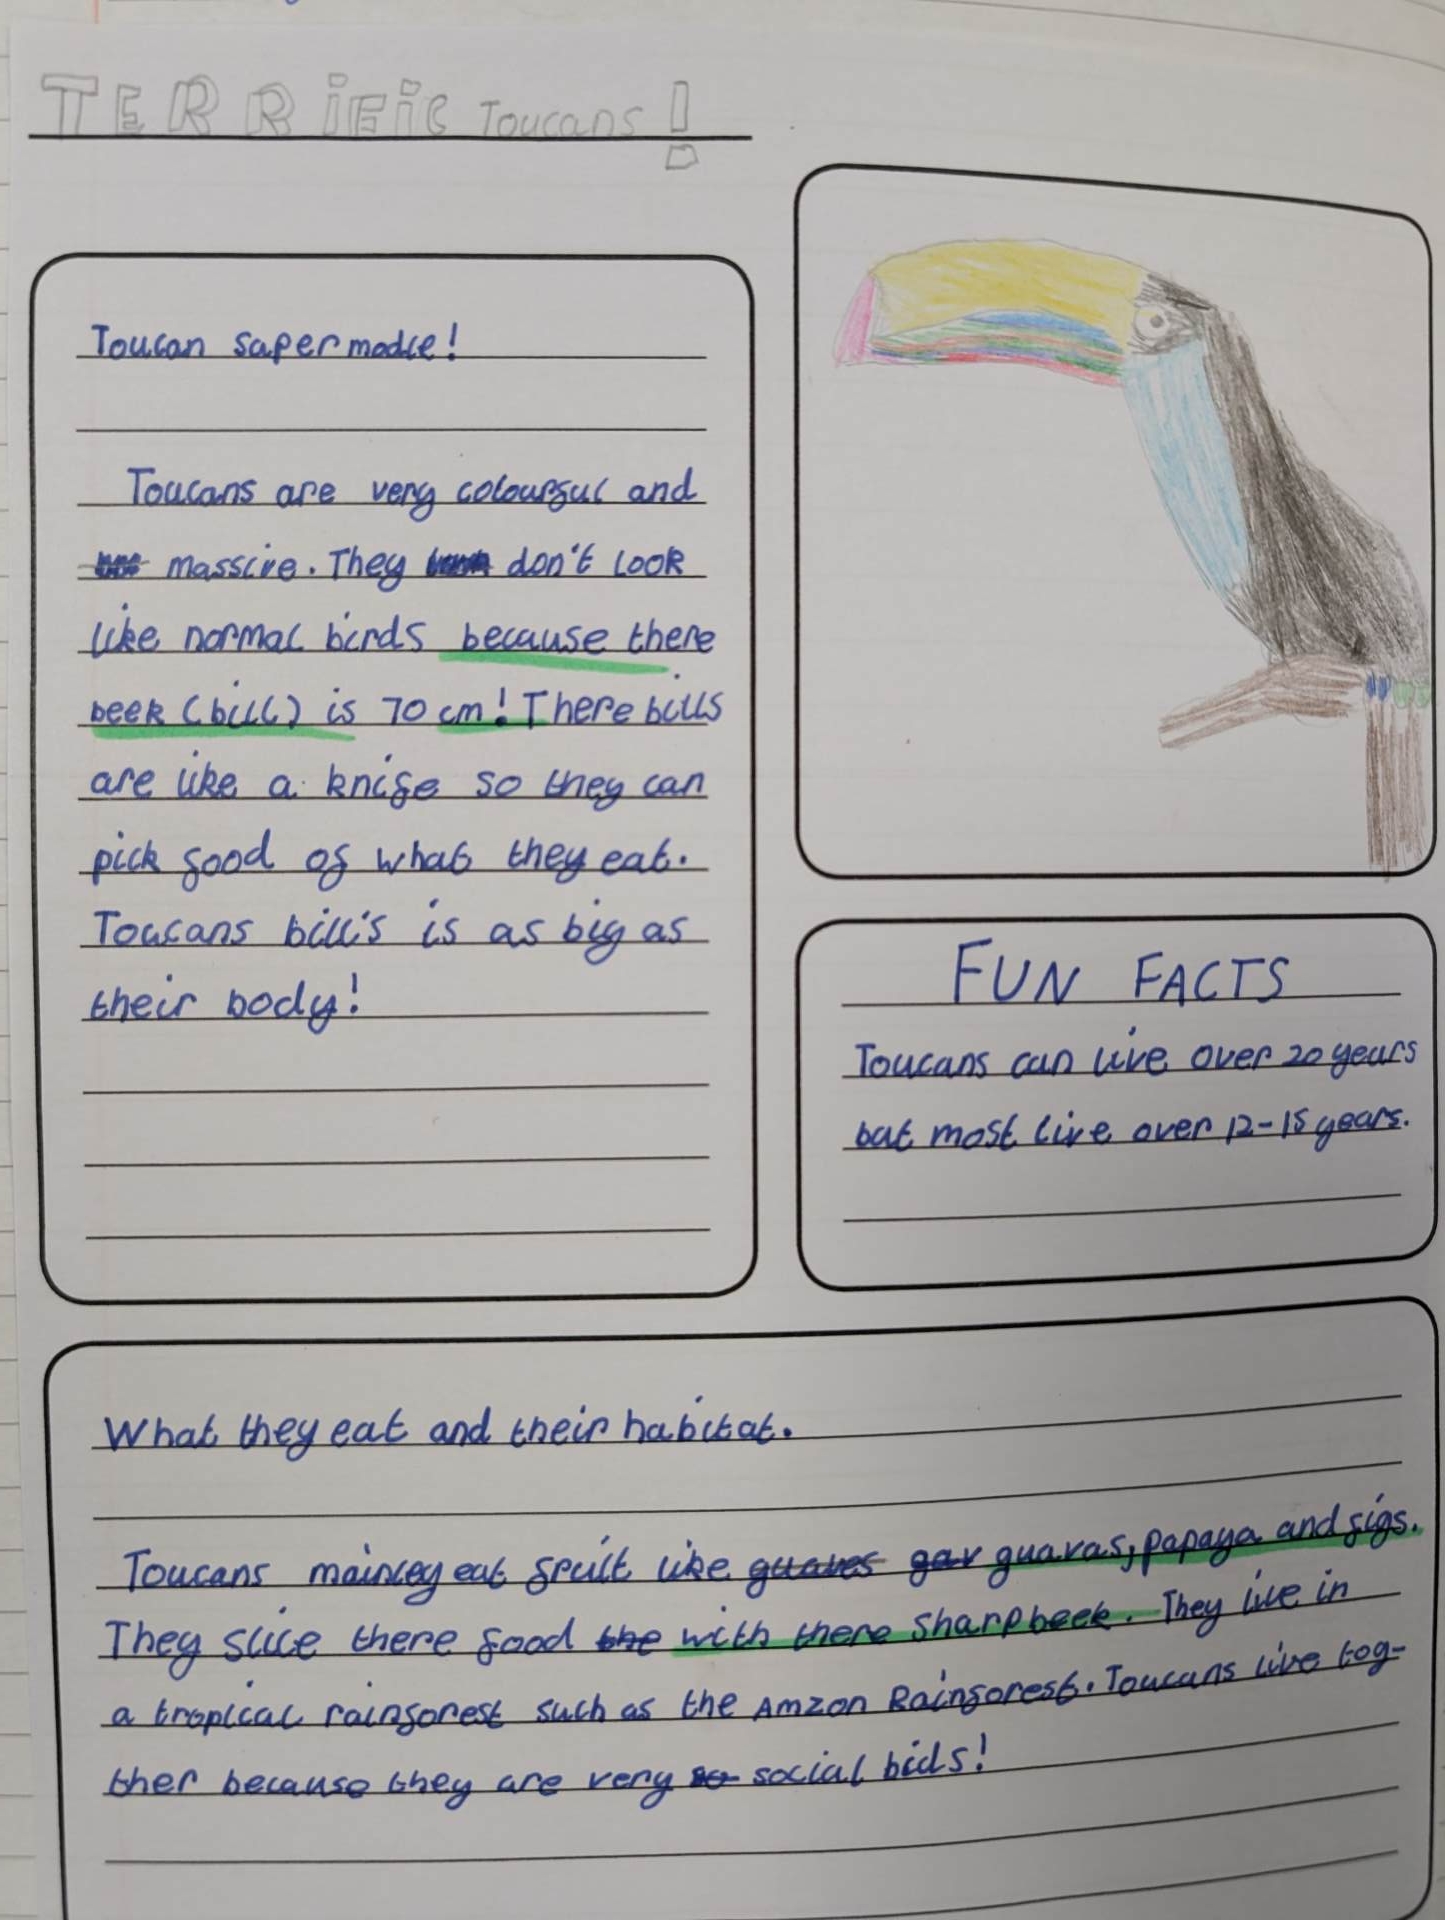 TERRIFIC Toucans!
Toucan supermodle!
Toucans are very colourful and
massive. They don't look
like normal birds because there
beek (bill) is 70 cm! There bills
are like a knife so they can
pick food of what they eat.
Toucans bill's is as big as
their body!
FUN FACTS
Toucans can live over 20 years
but most live over 12-15 years.
What they eat and their habitat.
Toucans mainley eat fruit like guaves gav guavas, papaya and figs.
They slice there food the with there sharp beek. They live in
a tropical rainforest such as the Amzon Rainforest. Toucans live tog-
ther because they are very so social bids!